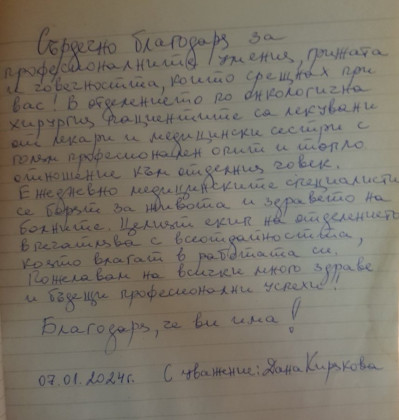 Сърдечно благодаря за
професионалните умения, грижата
и човечността, които срещнах при
вас! В отделението по онкологична
хирургия пациентите са лекувани
от лекари и медицински сестри с
голям професионален опит и топло
отношение към отделния човек.
Ежедневно медицинските специалисти
се борят за живота и здравето на
болните. Целият екип на отделението
впечатлява с всеотдайността,
която влагат в работата си.
Пожелавам на всички много здраве
и бъдещи професионални успехи!
Благодаря, че ви има!
07.01.2024г. С уважение: Дана Кирякова